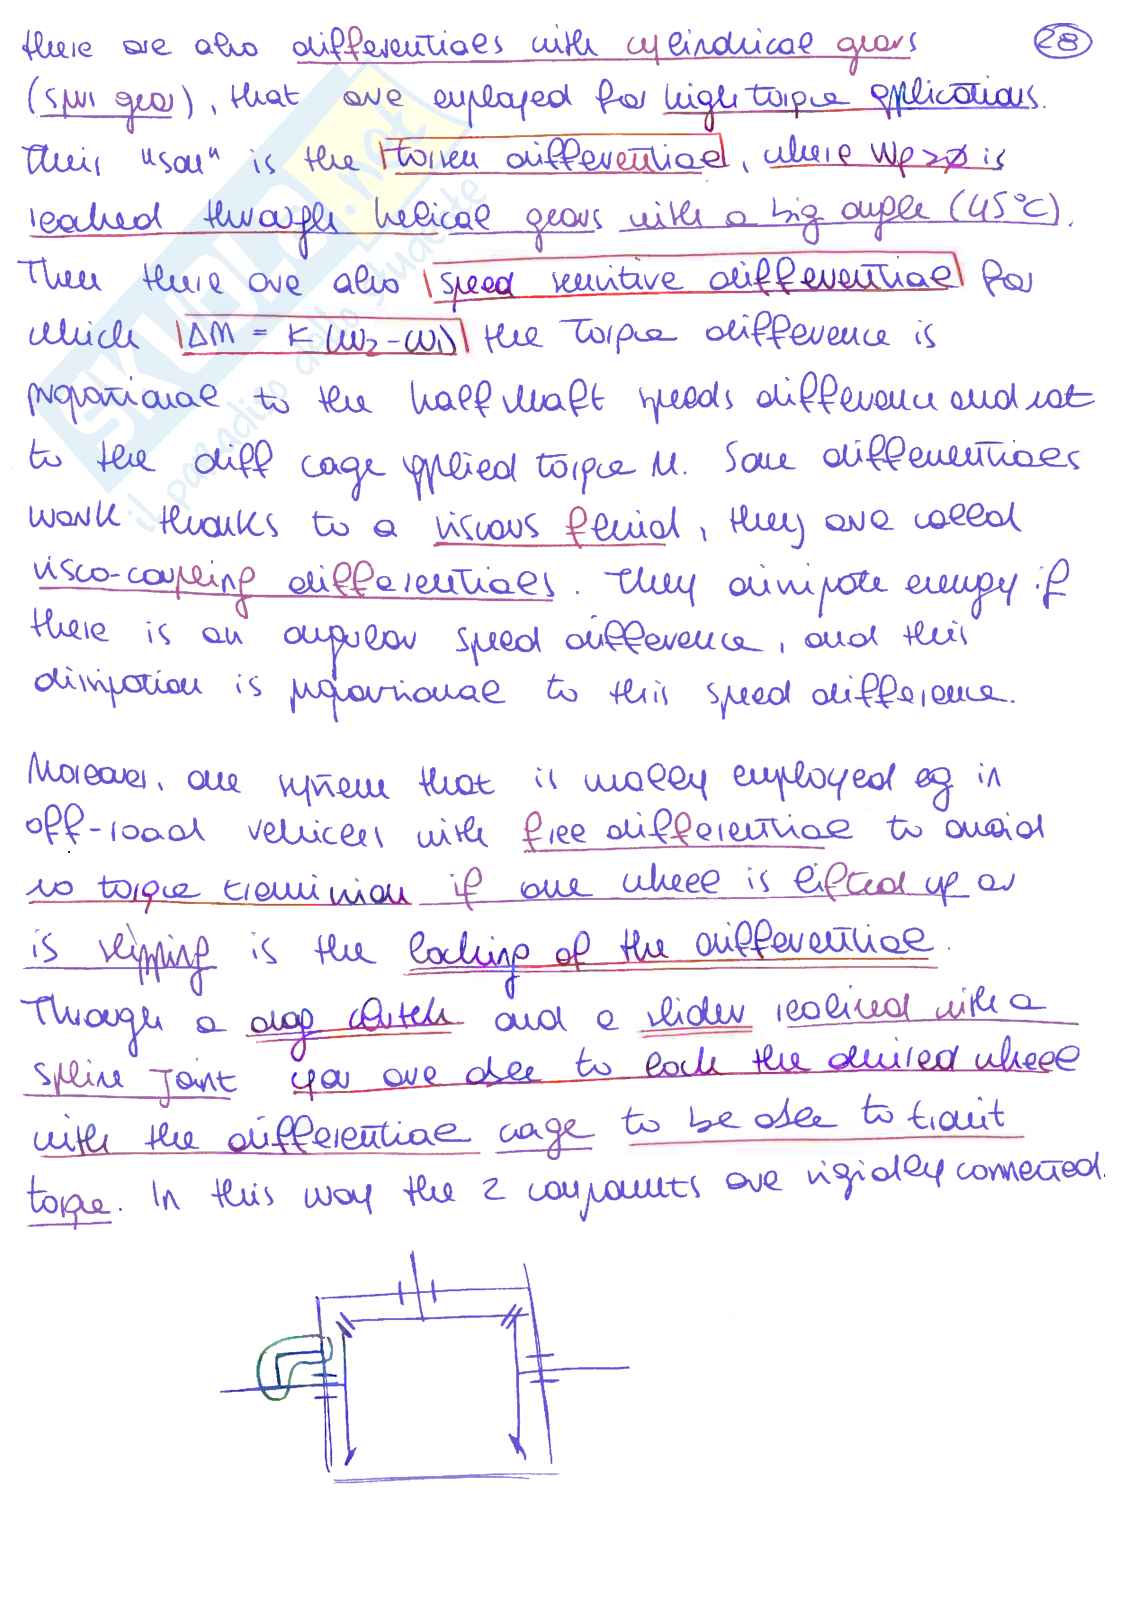 there are also differentials with cylindrical gears 28
(spur gear), that are employed for high torque applications.
Their "son" is the Torsen differential, where Wp>0 is
reached through helical gears with a big angle (45°C).
Then there are also speed sensitive differential for
which ΔM = K (ω2-ω1) the torque difference is
proportional to the half shaft speeds difference and not
to the diff cage applied torque M. Some differentials
work thanks to a viscous fluid, they are called
visco-coupling differentials. They dissipate energy if
there is an angular speed difference, and this
dissipation is proportional to this speed difference.
Moreover, one system that is widely employed eg in
off-road vehicles with free differential to avoid
no torque transmission if one wheel is lifted up or
is slipping is the locking of the differential.
Through a dog clutch and a slider realised with a
spline joint you are able to lock the desired wheel
with the differential cage to be able to transmit
torque. In this way the 2 components are rigidly connected.
SKUOLA.net
il paradiso dello studente